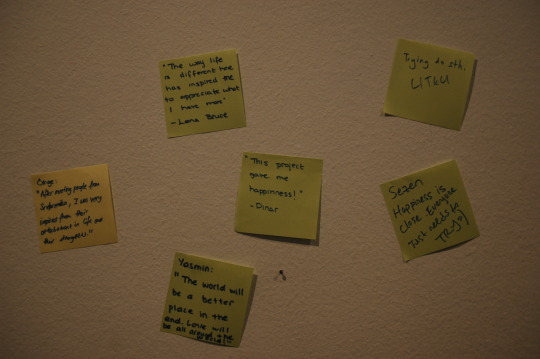 "The way life
is different here
has inspired me
to appreciate what
I have more"
- Lana Bruce
Trying do sth.
UTKU
"After meeting people from
I was very
inspired from their
in life and
"This project
gave me
happinness!"
- Dinar
Sezen
Happiness is
Close Everyone
Just needs to
TRY!
Yasmin:
"The world will
be a better
place in the
end. Love will
be all around the
world!"